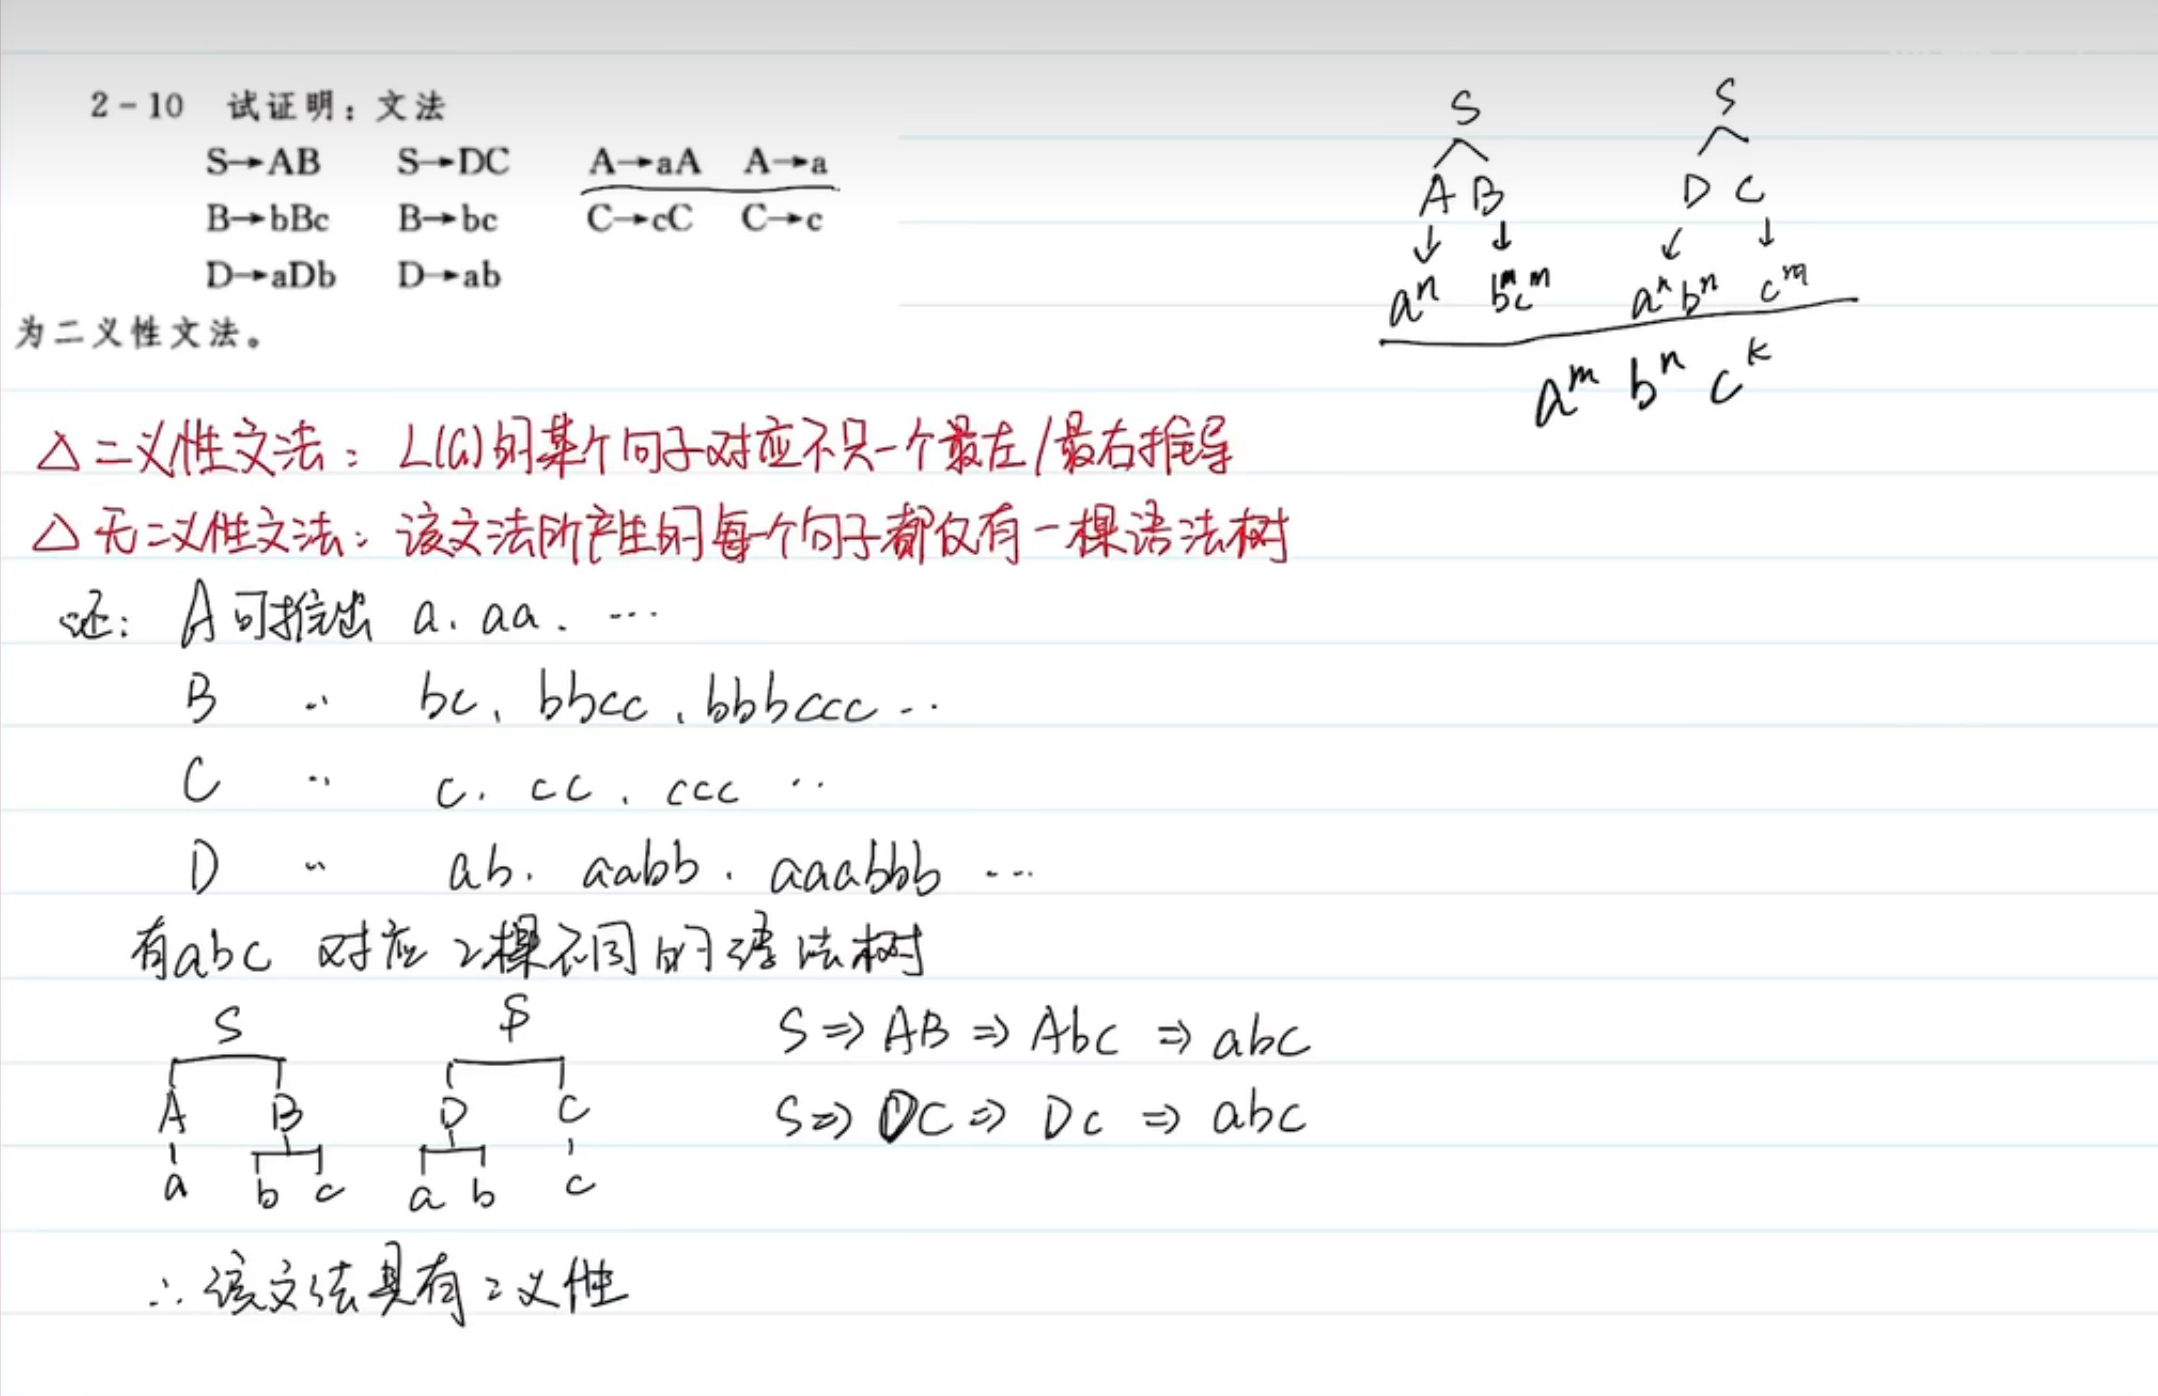 2-10 试证明：文法
S→AB S→DC A→aA A→a
B→bBc B→bc C→cC C→c
D→aDb D→ab
为二义性文法。
S S
A B D C
↓ ↓ ↙ ↓
aⁿ bᵐcᵐ aⁿbⁿ cᵐ
aᵐ bⁿ cᵏ
△二义性文法：L(G)的某个句子对应不只一个最左/最右推导
△无二义性文法：该文法所产生的每一个句子都仅有一棵语法树
证：A可推出 a、aa、…
B 〃 bc、bbcc、bbbccc…
C 〃 c、cc、ccc…
D 〃 ab、aabb、aaabbb…
有abc 对应2棵不同的语法树
S S S⇒AB⇒Abc⇒abc
A B D C S⇒DC⇒Dc⇒abc
a b c a b c
∴该文法具有二义性